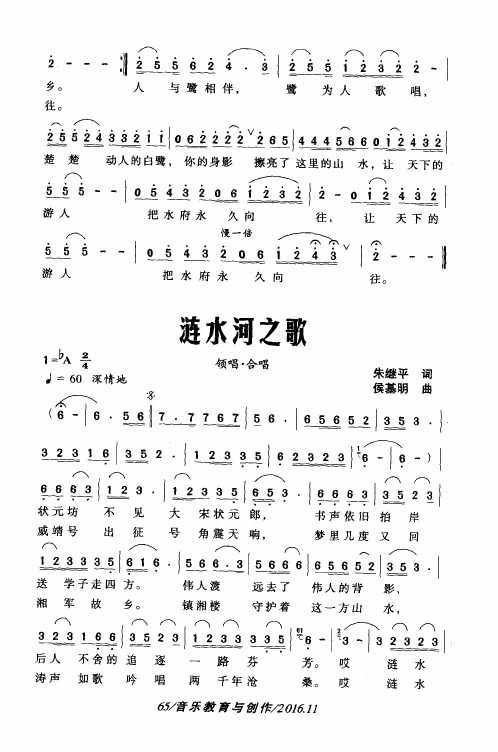 2̇ - - - :‖ 2̇ 5̇ 5̇ 6̇ 2̇ 4̇ . 3̇ | 2̇ 5̇ 5̇ 1̇ 2̇ 3̇ 2̇ 2̇ - |
乡。 人 与鹭相伴， 鹭 为人 歌 唱，
往。
2̇ 5̇ 5̇ 2̇ 4̇ 3̇ 3̇ 2̇ 1̇ 1̇ | 0 6 2̇ 2̇ 2̇ 2̇ ∨ 2̇ 6 5 | 4 4 4 5 6 6 0 1̇ 2̇ 4̇ 3̇ 2̇ |
楚 楚 动人的白鹭，你的身影 擦亮了 这里的山 水，让 天下的
5̇ 5̇ 5̇ - - | 0 5̇ 4̇ 3̇ 2̇ 0 6 1̇ 2̇ 3̇ 2̇ | 2̇ - 0 1̇ 2̇ 4̇ 3̇ 2̇ |
游人 把水府永 久向 往， 让 天下的
慢一倍
5̇ 5̇ 5̇ - - | 0 5̇ 4̇ 3̇ 2̇ 0 6 1̇ 2̇ 4̇ 3̇ ∨ | 2̇ - - - ‖
游人 把水府永 久向 往。
涟水河之歌
1=♭A 2/4
领唱·合唱
朱继平 词
♩= 60 深情地
侯基明 曲
(6 - | 6 . 5 6 ‖ 7 . 7 7 6 7 | 5 6 . | 6 5 6 5 2 | 3 5 3 . |
3 2 3 1 6 | 3 5 2 . | 1 2 3 3 5 | 6 2 3 2 3 | 6 - | 6 - ) |
6 6 6 3 | 1 2 3 . | 1 2 3 3 5 | 6 5 3 . | 6 6 6 3 | 3 5 2 3 |
状元坊 不见 大 宋状元 郎， 书声依旧 拍 岸
威靖号 出征 号 角震天 响， 梦里几度 又 回
1 2 3 3 3 5 | 6 1 6 . | 5 6 6 . 3 | 5 6 6 5 . | 6 6 5 6 5 2 | 3 5 3 . |
送 学子走四 方。 伟人渡 远去了 伟人的背 影，
湘 军故乡。 镇湘楼 守护着 这一方山 水，
3 2 3 1 6 6 | 3 5 2 3 | 1 2 3 3 3 3 5 | 6 - | 3 - | 3 2 3 2 3 |
后人 不舍的 追 逐 一 路芬 芳。 哎 涟 水
涛声 如歌 吟 唱 两 千年沧 桑。 哎 涟 水
65/音乐教育与创作/2016.11